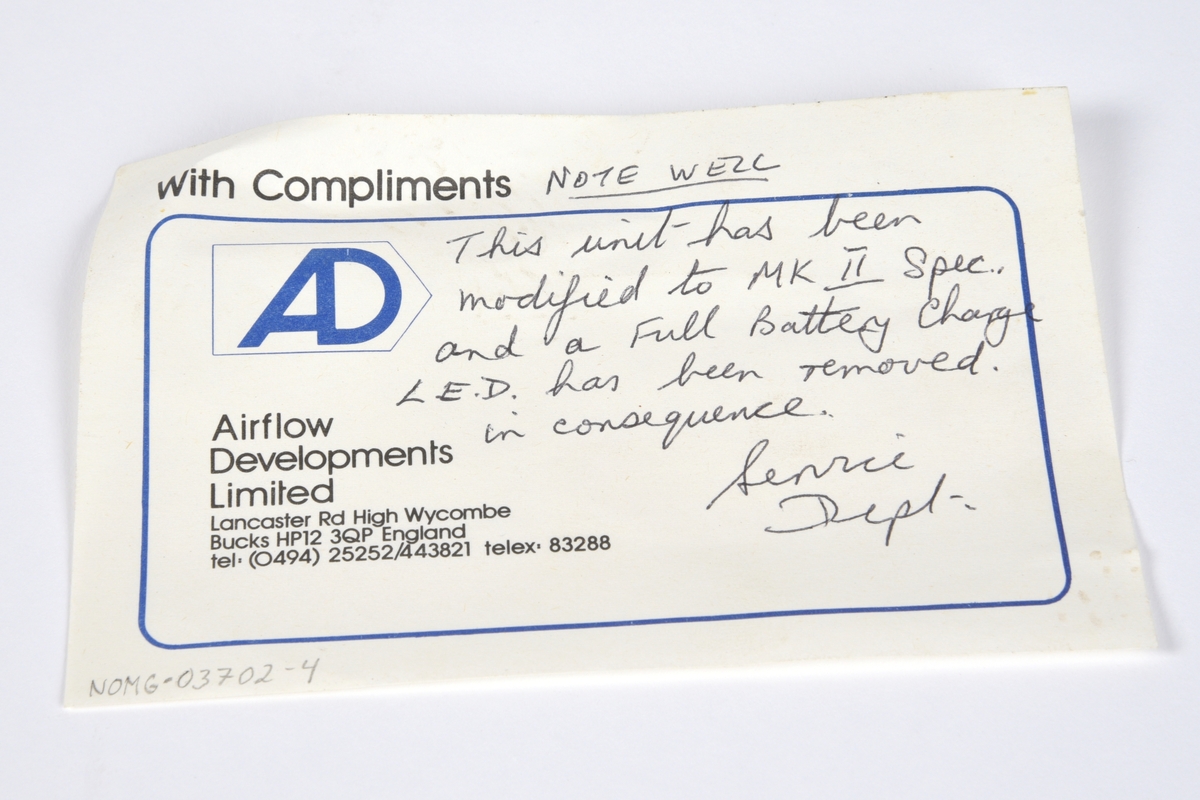 With Compliments NOTE WELL
AD
This unit has been
modified to MK II Spec.,
and a Full Battery Charge
L.E.D. has been removed.
in consequence.
Service
Dept.
Airflow
Developments
Limited
Lancaster Rd High Wycombe
Bucks HP12 3QP England
tel: (0494) 25252/443821 telex: 83288
NOMG-03702-4